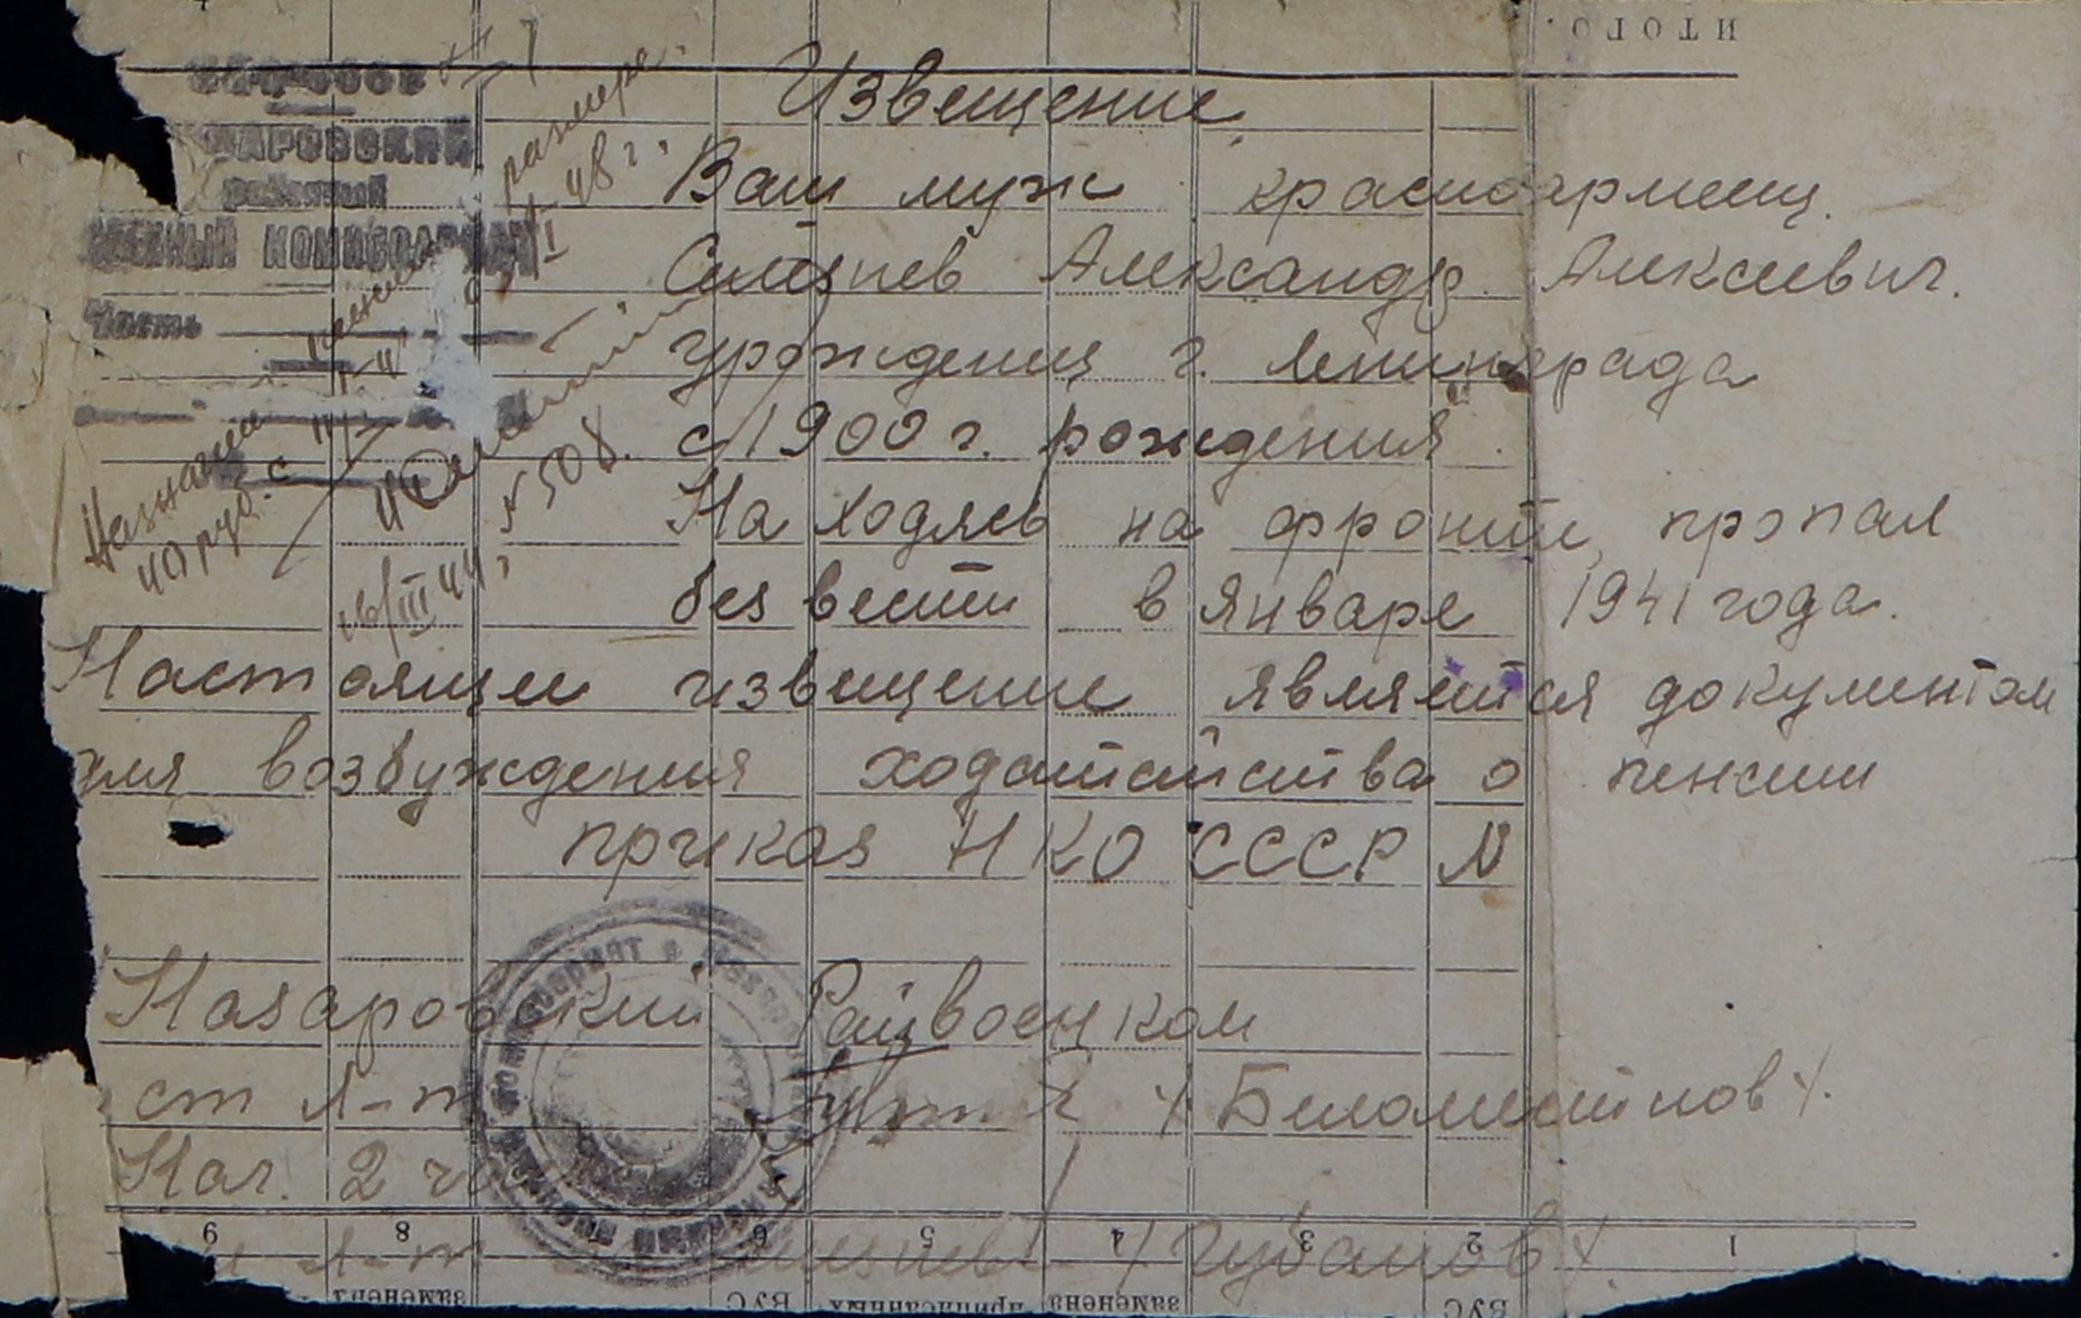 итого.
НКО СССР
НАЗАРОВСКИЙ
районный
ВОЕННЫЙ КОМИССАРИАТ
Часть
№ 7
размере.
48 г.
Назначен
40 руб. с
№ 508.
16/III 44 г
Извещение
Ваш муж красноармеец.
Александр Алексеевич.
урождения г. Ленинграда
с 1900 г. рождения.
На ходясь на фронте, пропал
без вести в январе 1941 года.
Настоящее извещение является документом
для возбуждения ходатайства о пенсии
приказ НКО СССР №
Назаровский Райвоенком
ст л-т / Беломестнов /.
Нач. 2 ча
л-т / Губанов /.
9 8 6 5 4 3 2 1
заменена ВУС приписанных заменена ВУС